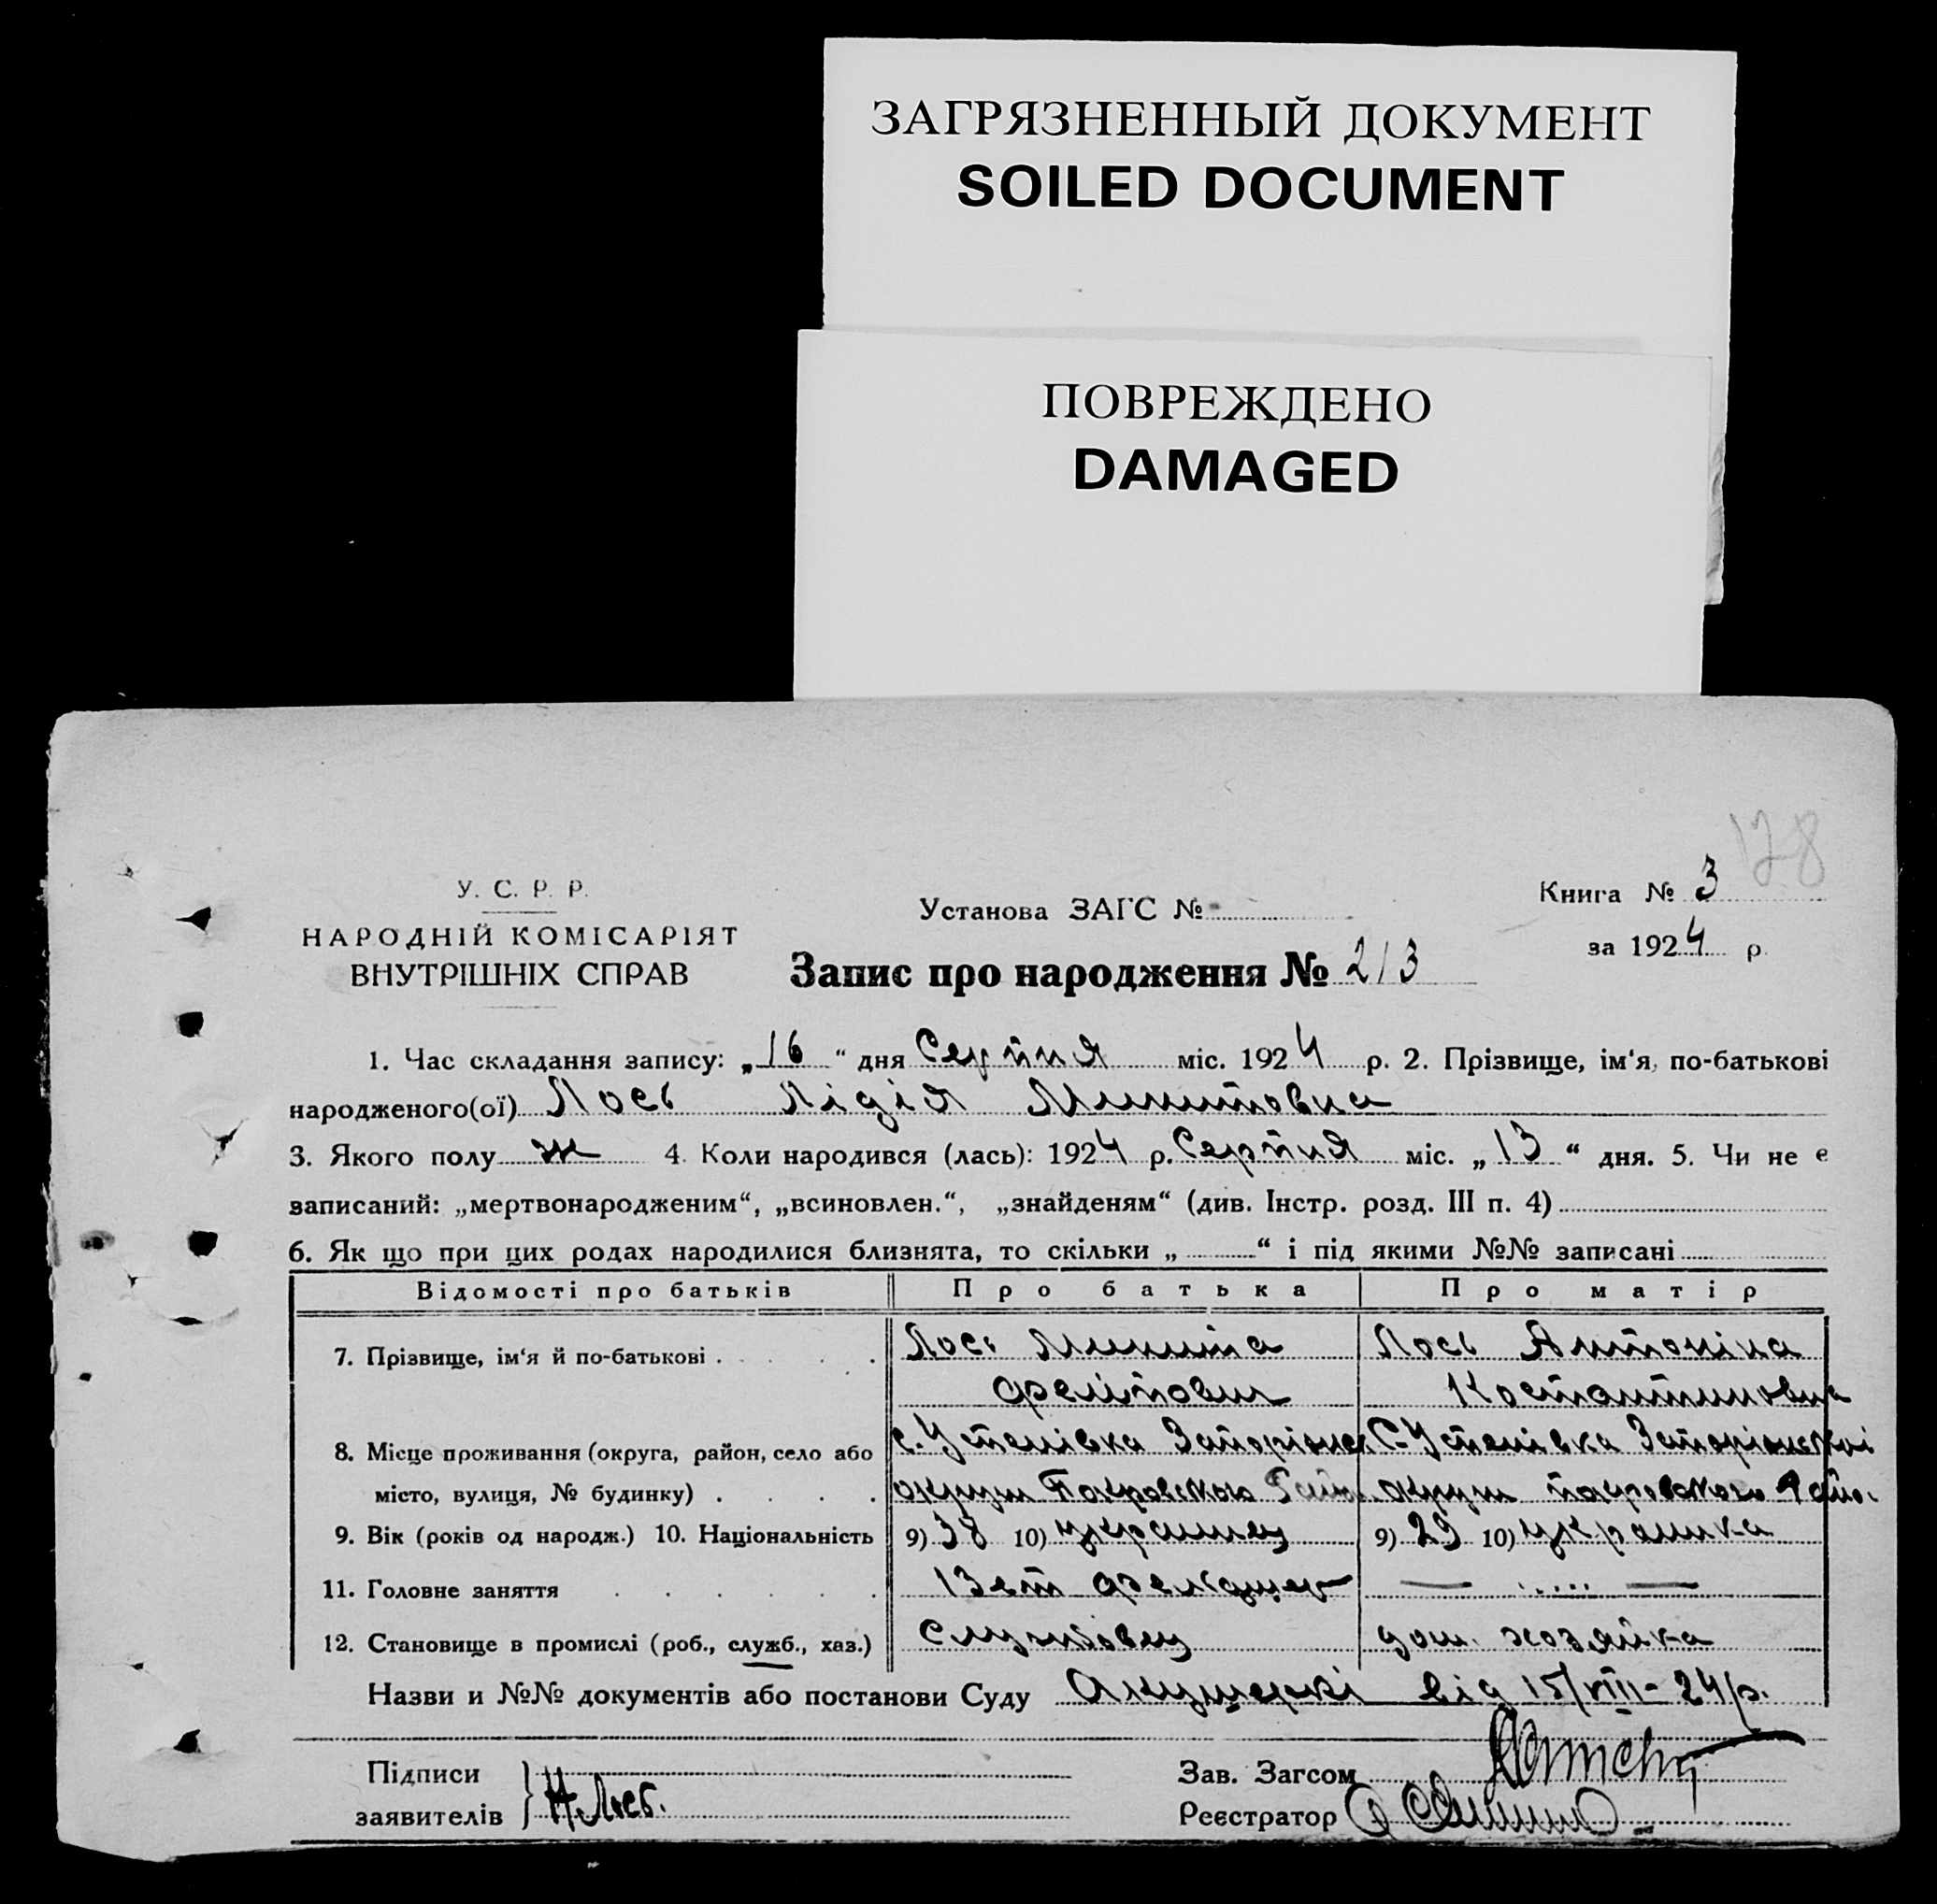 ЗАГРЯЗНЕННЫЙ ДОКУМЕНТ
SOILED DOCUMENT
ПОВРЕЖДЕНО
DAMAGED
128
У. С. Р. Р.
НАРОДНІЙ КОМІСАРІЯТ
ВНУТРІШНІХ СПРАВ
Установа ЗАГС №
Книга № 3
за 1924 р.
Запис про народження № 213
1. Час складання запису: „16“ дня Серпня міс. 1924 р. 2. Прізвище, ім‘я, по-батькові
народженого(ої) Лось Лідія Микитовна
3. Якого полу ж 4. Коли народився (лась): 1924 р. Серпня міс. „13“ дня. 5. Чи не є
записаний: „мертвонародженим“, „всиновлен.“, „знайденям“ (див. Інстр. розд. III п. 4)
6. Як що при цих родах народилися близнята, то скільки „ “ і під якими №№ записані
Відомості про батьків Про батька Про матір
7. Прізвище, ім‘я й по-батькові . . . . . Лось Микита Лось Антоніна
Костантиновна
8. Місце проживання (округа, район, село або с. Успенівка Запоріжс. С. Успенівка Запоріжської
місто, вулиця, № будинку) . . . . округи Покровського Райо. округи покровського Райо.
9. Вік (років од народж.) 10. Національність 9) 38 10) українец 9) 29 10) українка
11. Головне заняття . . . . . . Вет фельдшер — ..... —
12. Становище в промислі (роб., служб., хаз.) службовец дом. хозяйка
Назви и №№ документів або постанови Суду Акушеркі від 15/VIII-24 р.
Підписи
заявителів Н Лось.
Зав. Загсом
Реєстратор